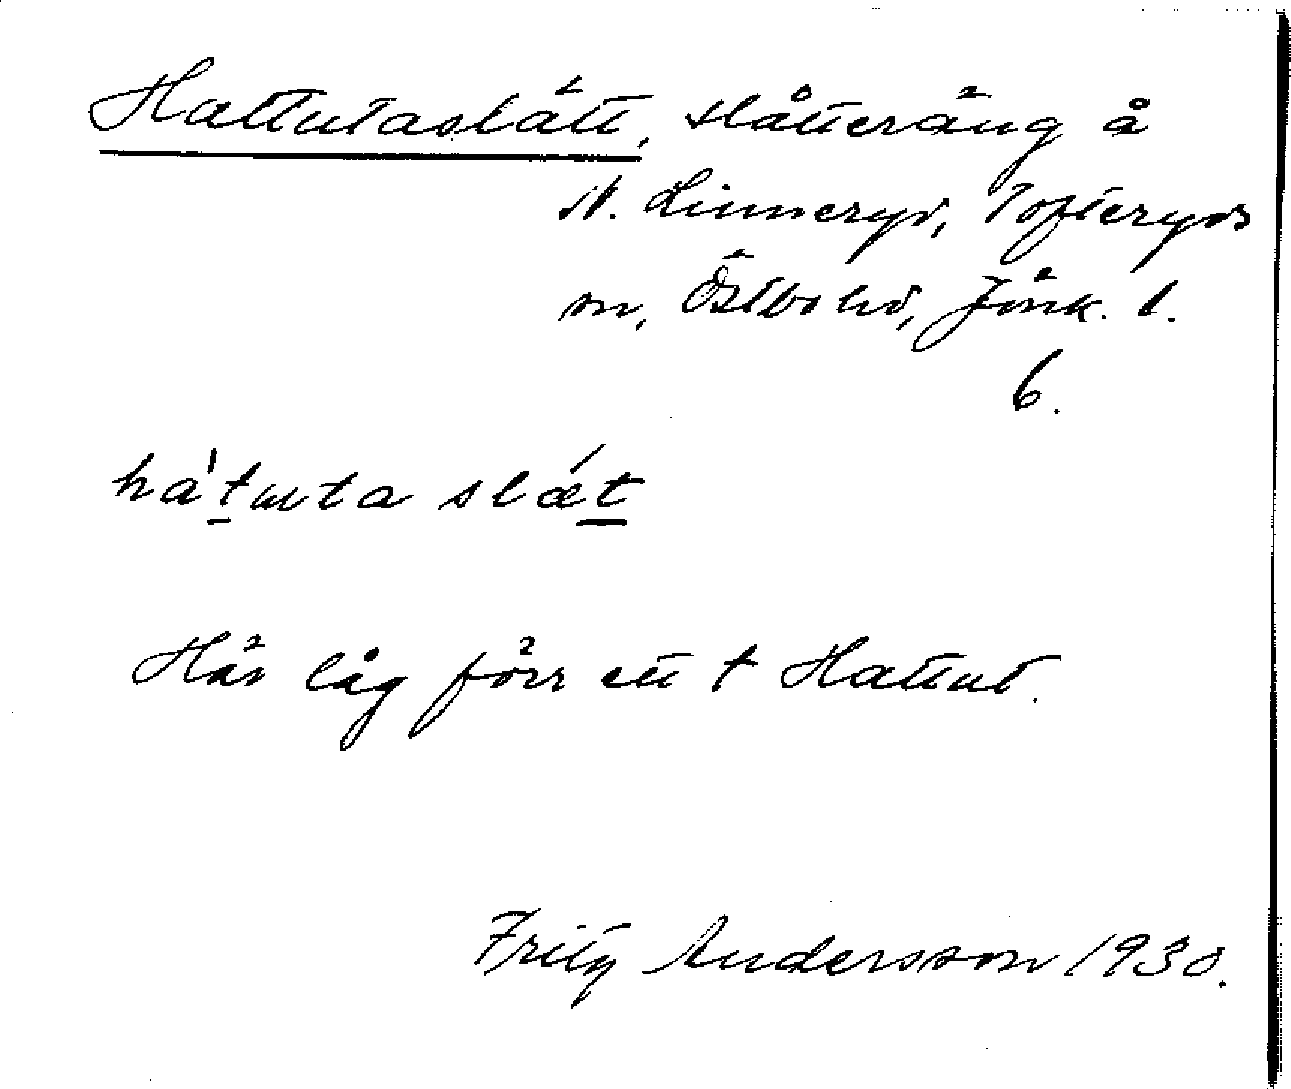 Hattutaslätt, slåtteräng å
N. Linneryd, Tofteryds
sn, Östbo hd, Jönk. l.
6.
hátuta slǽt
Här låg förr ett t Hattut.
Fritz Andersson 1930.